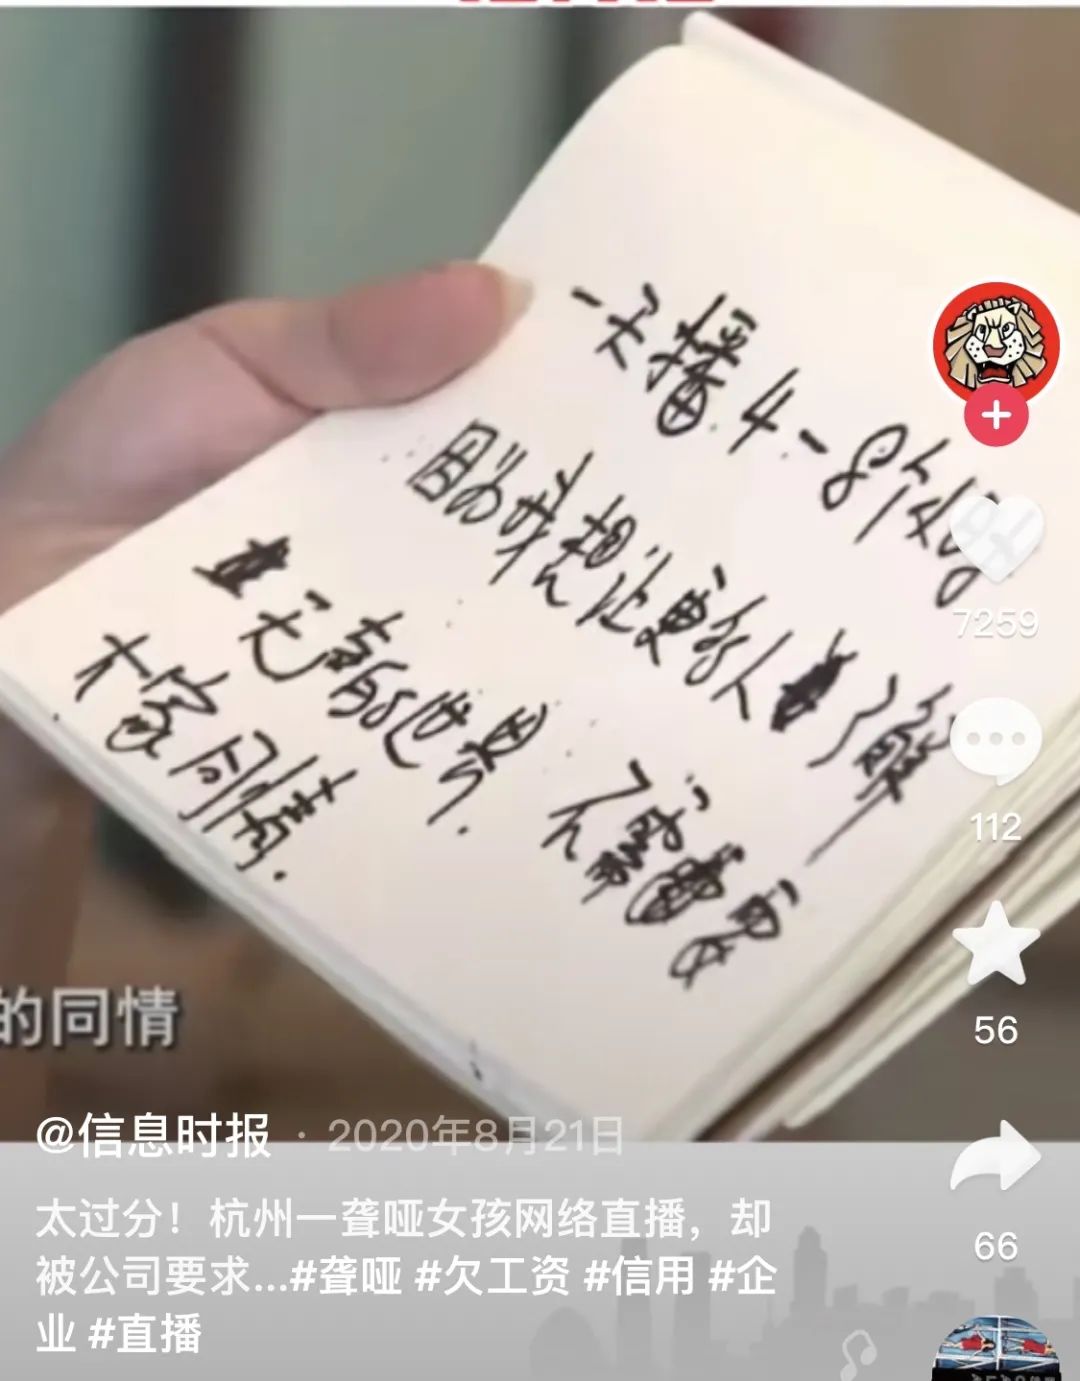 一天播4-8个小时
因为我想让更多的人了解
无声世界.不需要
大家同情.
的同情
7259
112
56
66
@信息时报 · 2020年8月21日
太过分！杭州一聋哑女孩网络直播，却
被公司要求...#聋哑 #欠工资 #信用 #企
业 #直播